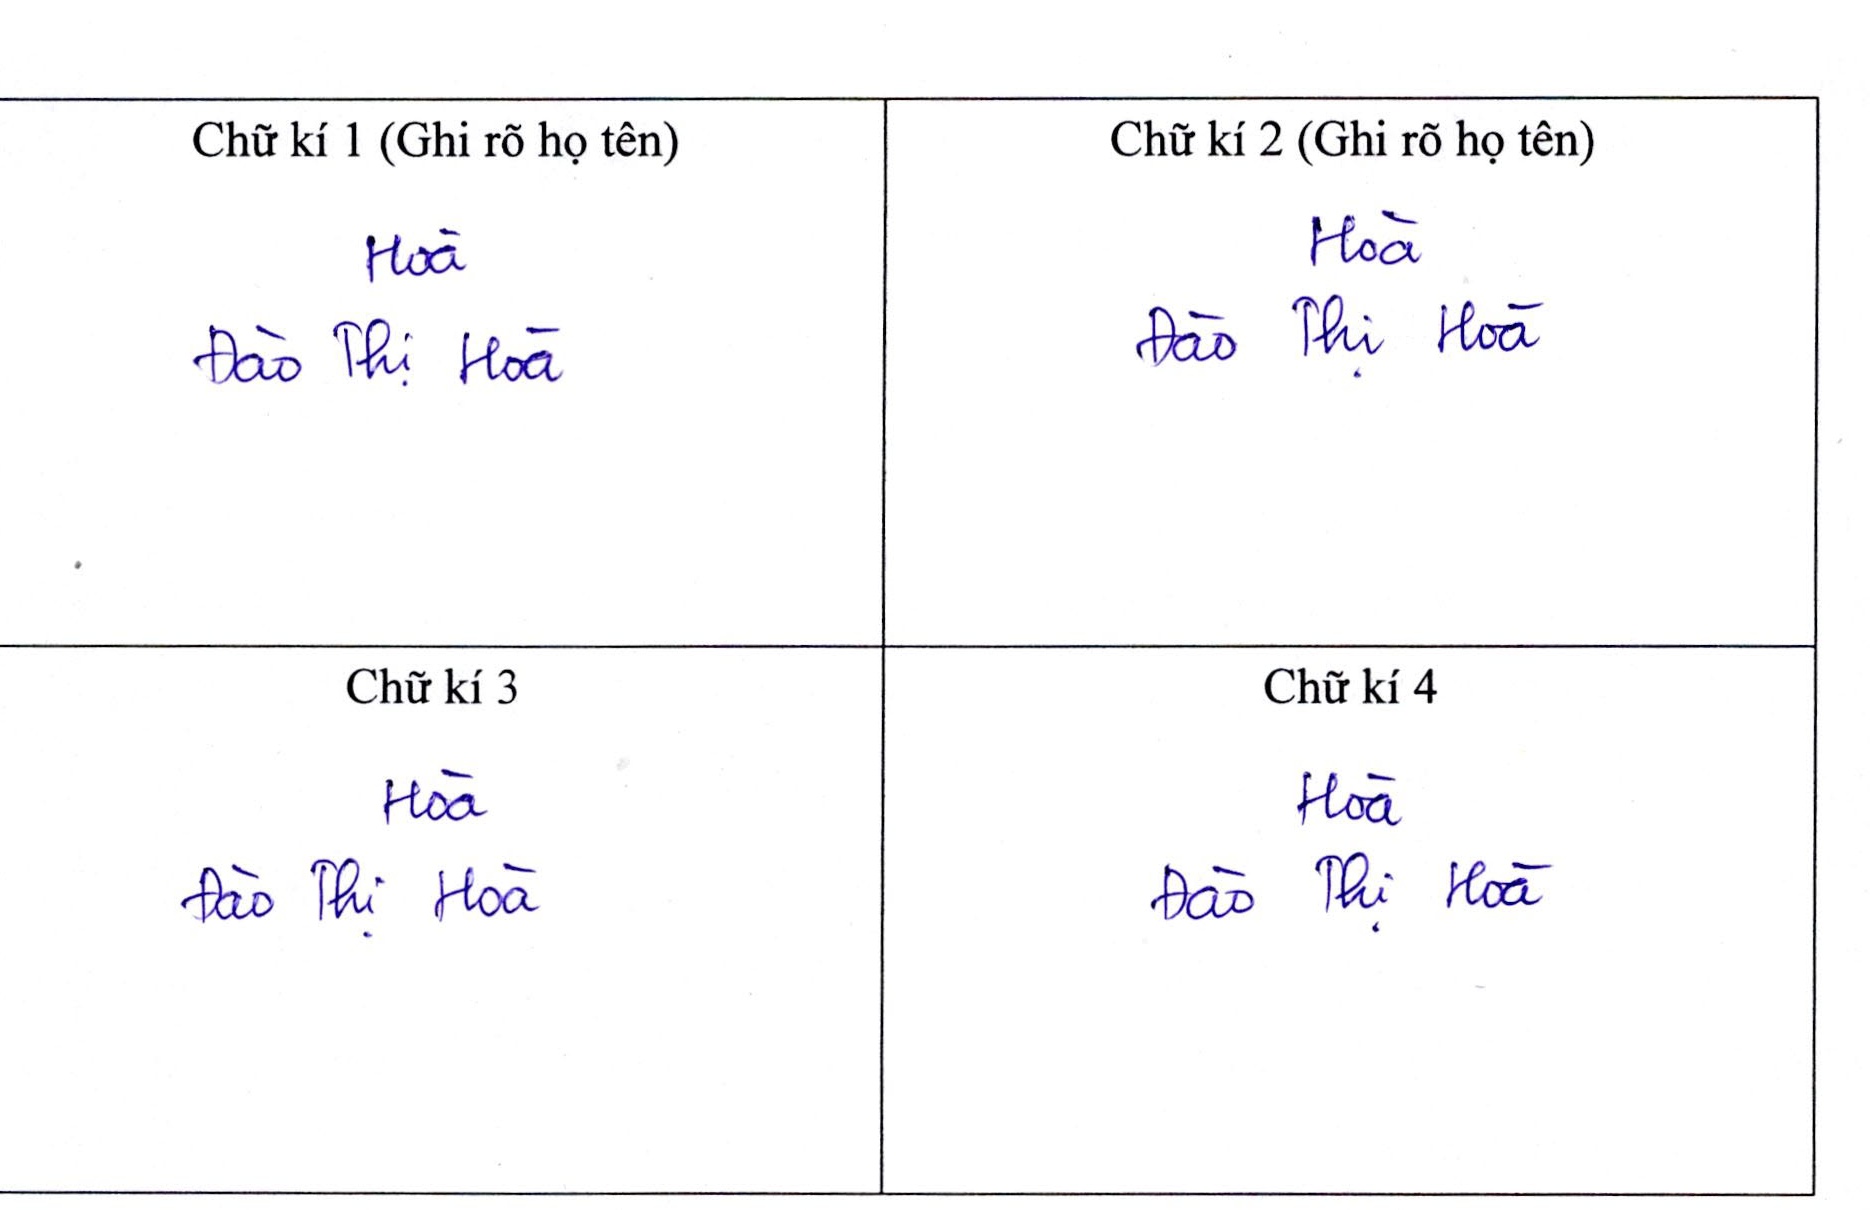 Chữ kí 1 (Ghi rõ họ tên)
Hoà
Đào Thị Hoà
Chữ kí 2 (Ghi rõ họ tên)
Hoà
Đào Thị Hoà
Chữ kí 3
Hoà
Đào Thị Hoà
Chữ kí 4
Hoà
Đào Thị Hoà